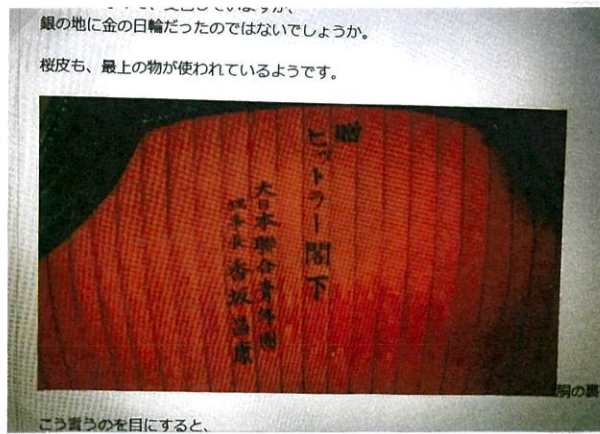 銀の地に金の日輪だったのではないでしょうか。
桜皮も、最上の物が使われているようです。
贈
ヒットラー閣下
大日本聯合青年團
理事長 香坂昌康
胴の裏
こう言うのを目にすると、